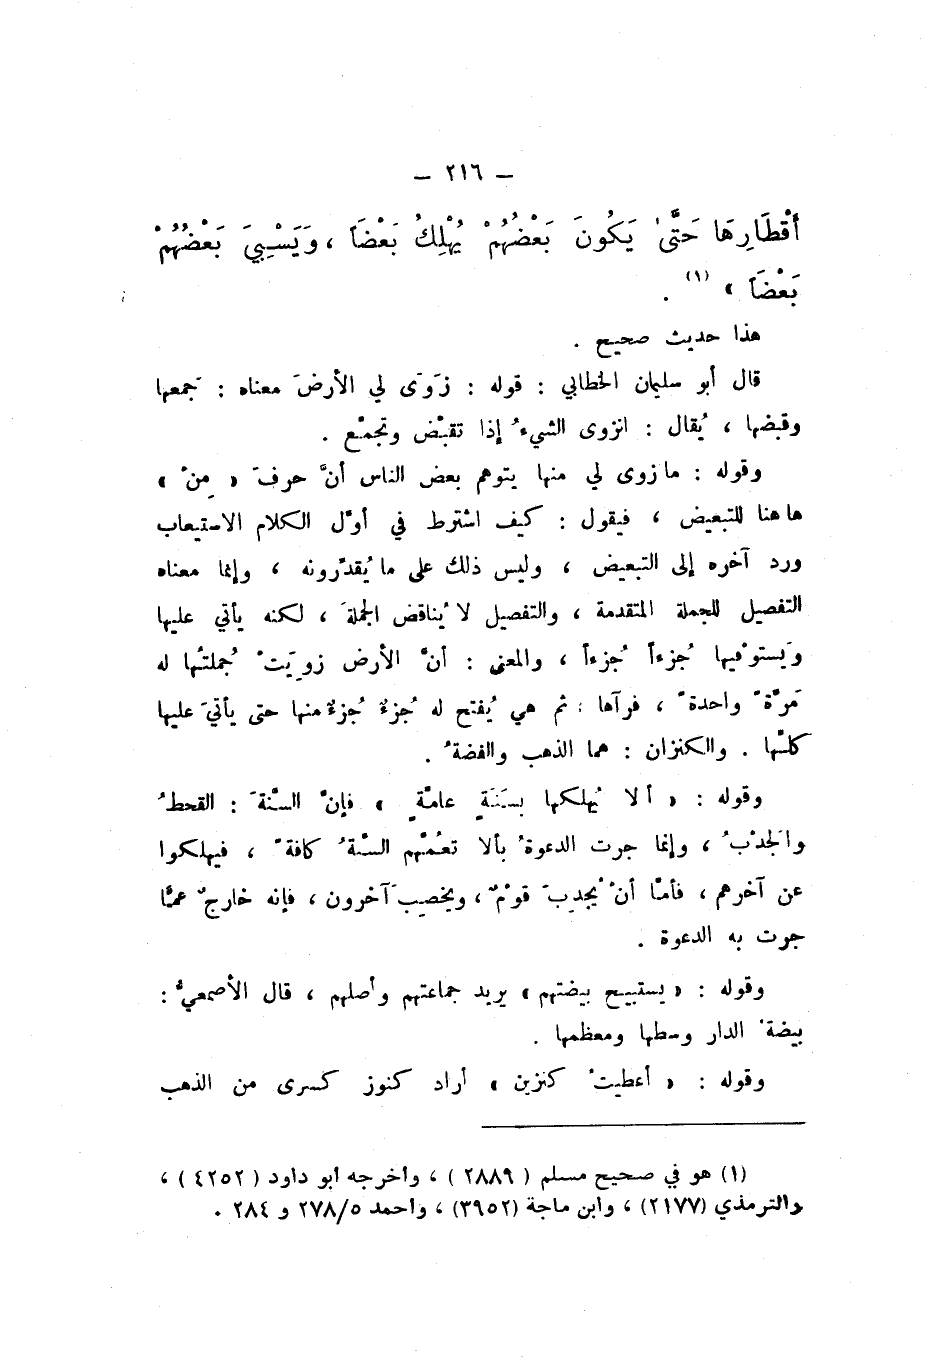 — ٢١٦ —
أَقْطَارِهَا حَتَّى يَكُونَ بَعْضُهُمْ يُهْلِكُ بَعْضَاً ، وَيَسْبِيَ بَعْضُهُمْ
بَعْضَاً » (١) .
هذا حديث صحيح .
قال أبو سليمان الخطابي : قوله : زَوَى لي الأرضَ معناه : جَمعها
وقبضها ، يُقال : انزوى الشيءُ إذا تقبّض وتجمّع .
وقوله : ما زوى لي منها يتوهم بعض الناس أنَّ حرفَ « مِنْ »
ها هنا للتبعيض ، فيقول : كيف اشترط في أوّل الكلام الاستيعاب
ورد آخره إلى التبعيض ، وليس ذلك على ما يُقدّرونه ، وإنما معناه
التفصيل للجملة المتقدمة ، والتفصيل لا يُناقض الجملةَ ، لكنه يأتي عليها
وَيستوْفيها جُزءاً جُزءاً ، والمعنى : أنَّ الأرض زويَتْ جُملتُها له
مَرَّةً واحدةً ، فرآها : ثم هي يُفتح له جُزءٌ جُزءٌ منها حتى يأتيَ عليها
كلِّها . والكنزان : هما الذهب والفضةُ .
وقوله : « ألا يُهلكها بسَنَةٍ عامَّةٍ » فإنَّ السَّنةَ : القحطُ
والجَدْبُ ، وإنما جرت الدعوةُ بألا تعُمَّهم السَّنةُ كافةً ، فيهلكوا
عن آخرهم ، فأمّا أنْ يُجدِبَ قوْمٌ ، ويخصِبَ آخرون ، فإنه خارجٌ عمّا
جرت به الدعوة .
وقوله : « يستبيح بيضتهم » يريد جماعتهم وأصلهم ، قال الأصمعيُّ :
بيضةُ الدار وسطها ومعظمها .
وقوله : « أعطيتُ كنزين » أراد كنوز كسرى من الذهب
(١) هو في صحيح مسلم ( ٢٨٨٩ ) ، وأخرجه أبو داود ( ٤٢٥٢ ) ،
والترمذي (٢١٧٧) ، وابن ماجة (٣٩٥٢) ، وأحمد ٢٧٨/٥ و ٢٨٤ .